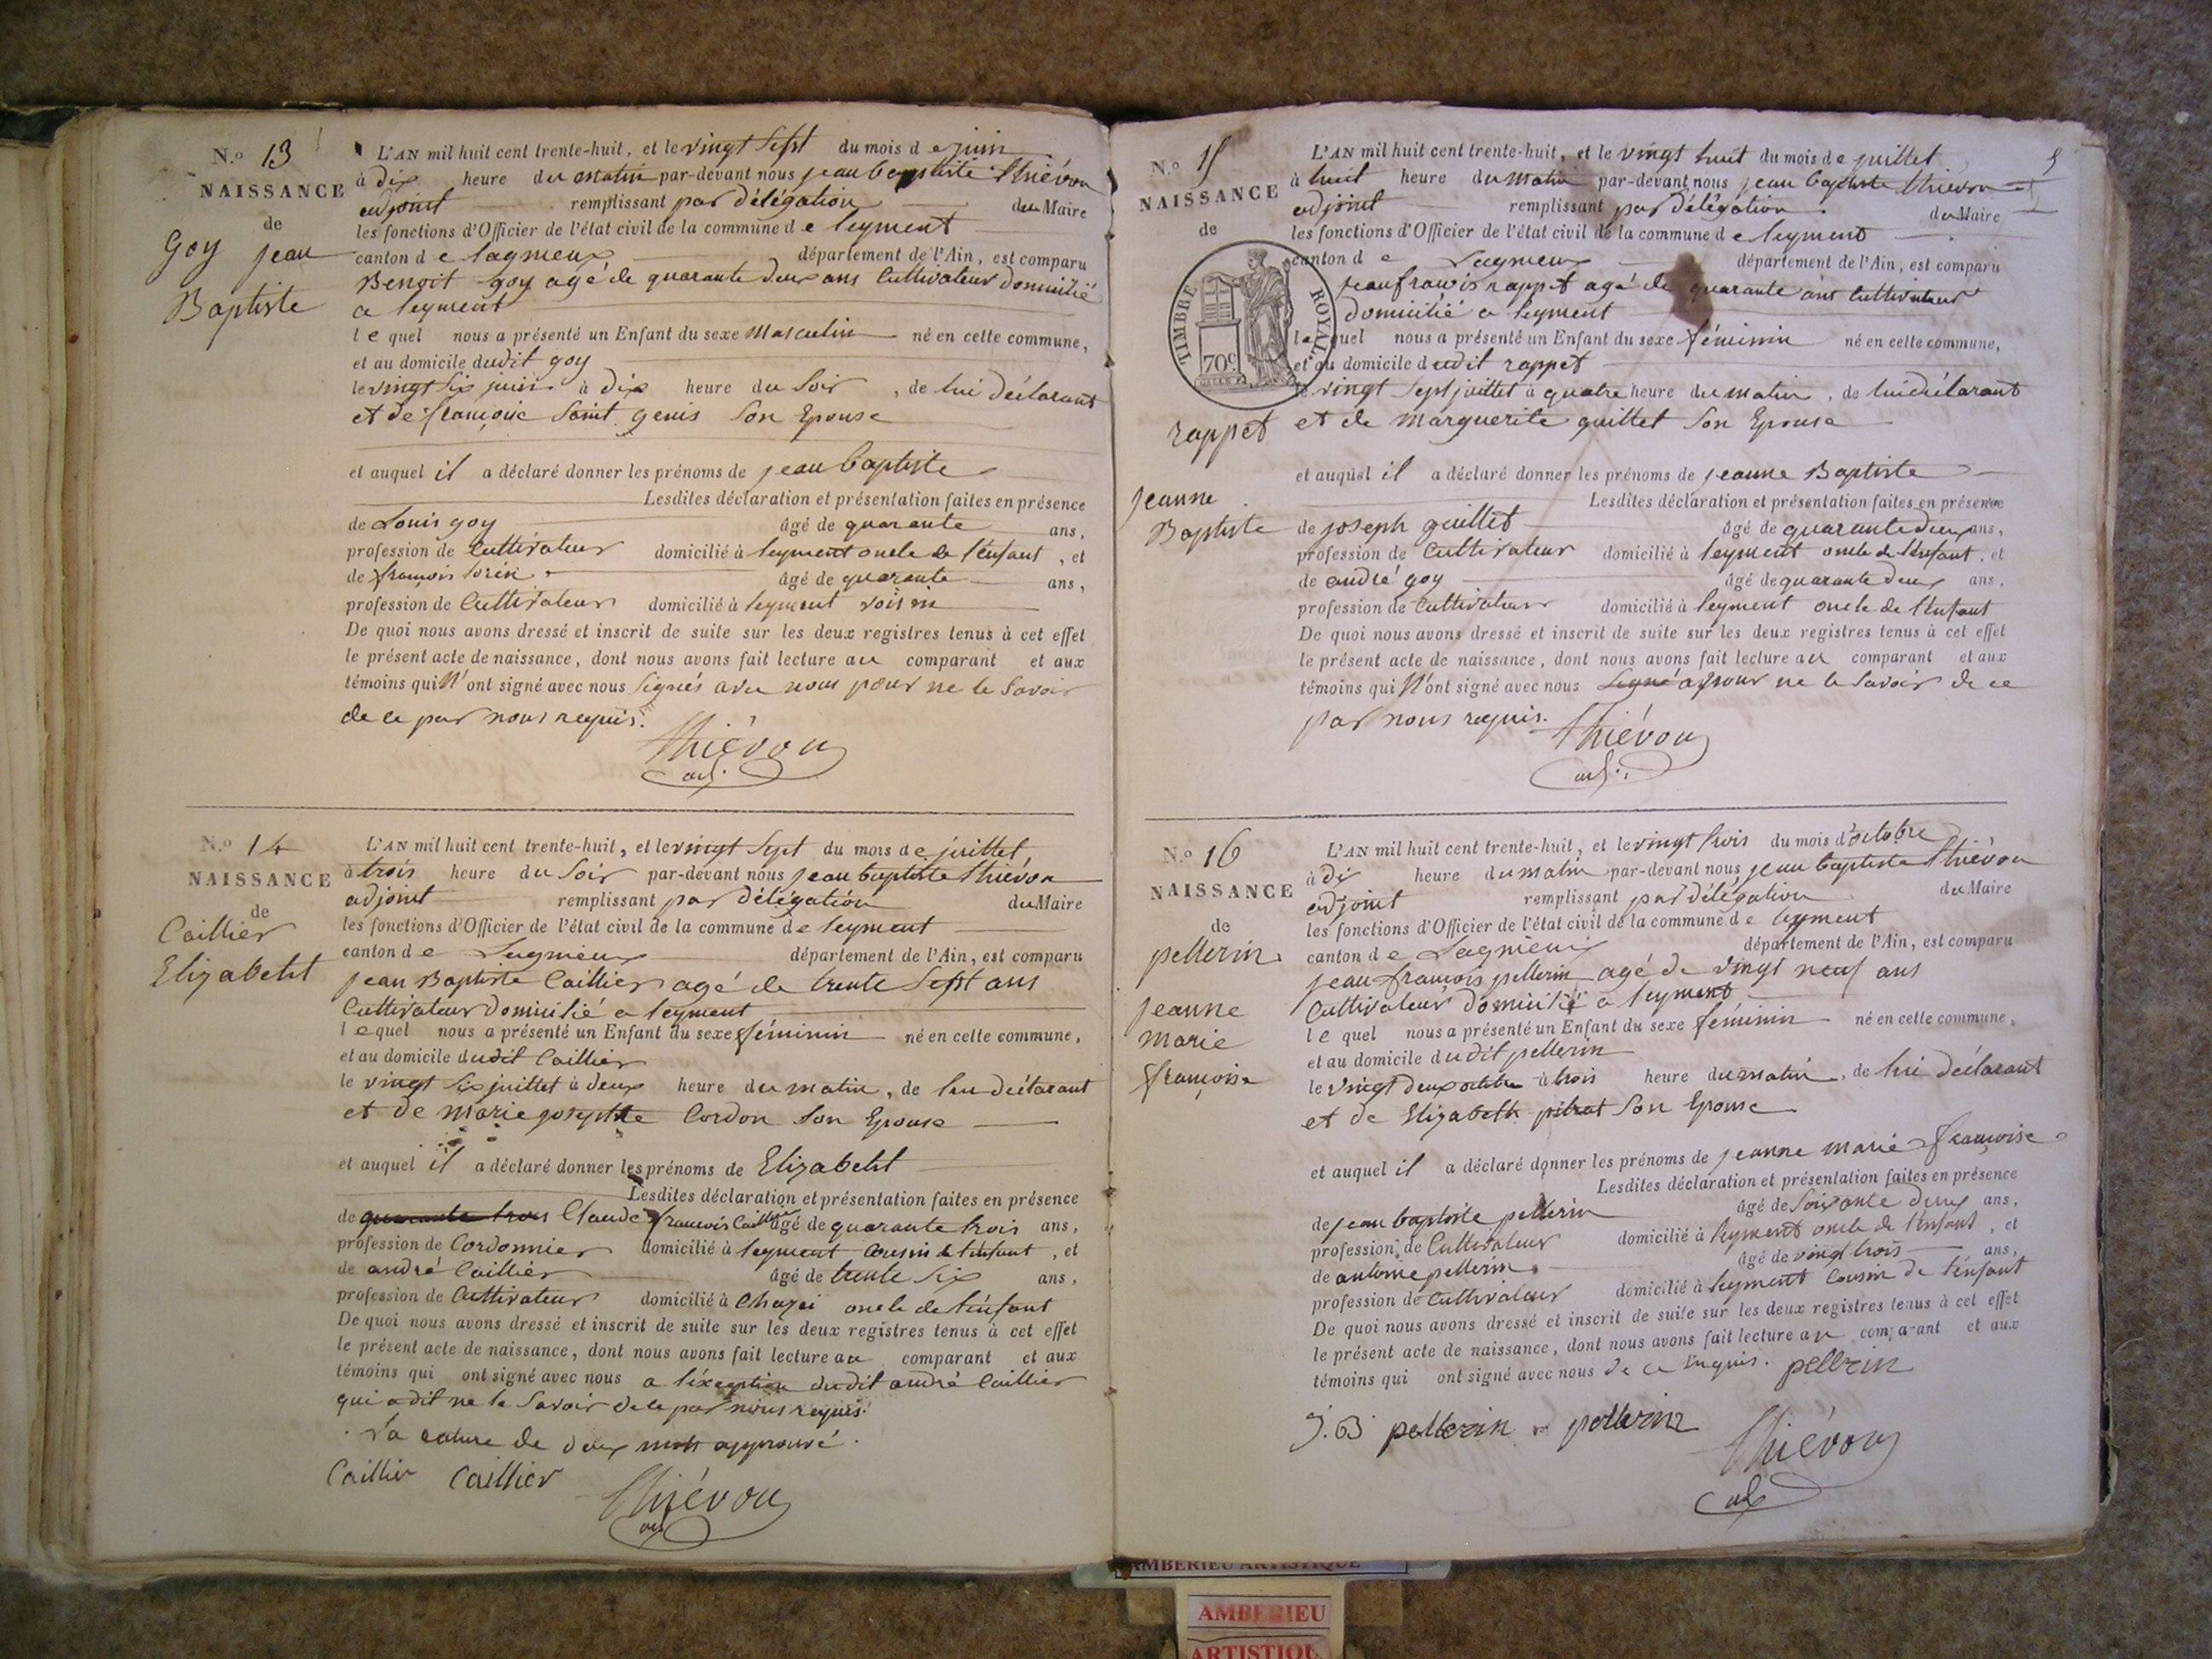 N.o 13
NAISSANCE
de
Goy jean
Baptiste
L'AN mil huit cent trente-huit, et le vingt Sept du mois de juin
à dix heure du matin par-devant nous jean baptiste thiévon
adjoint remplissant par délégation du Maire
les fonctions d'Officier de l'état civil de la commune de leyment
canton de lagnieux département de l'Ain, est comparu
Benoit goy agé de quarante deux ans Cultivateur domicilié
a leyment
lequel nous a présenté un Enfant du sexe masculin né en cette commune,
et au domicile dudit goy
le vingt Six juin à dix heure du Soir, de lui déclarant
et de françoise Saint genis Son Epouse
et auquel il a déclaré donner les prénoms de jean baptiste
Lesdites déclaration et présentation faites en présence
de Louis goy âgé de quarante ans,
profession de Cultivateur domicilié à leyment oncle de l'enfant, et
de françois âgé de quarante ans,
profession de Cultivateur domicilié à leyment voisin
De quoi nous avons dressé et inscrit de suite sur les deux registres tenus à cet effet
le présent acte de naissance, dont nous avons fait lecture au comparant et aux
témoins qui n'ont signé avec nous signés avec nous pour ne le Savoir
de ce par nous requis.
thiévon
adj.
N.o 14
NAISSANCE
de
Caillier
Elizabeht
L'AN mil huit cent trente-huit, et le vingt Sept du mois de juillet
à trois heure du Soir par-devant nous jean baptiste thiévon
adjoint remplissant par délégation du Maire
les fonctions d'Officier de l'état civil de la commune de leyment
canton de Lagnieux département de l'Ain, est comparu
jean Baptiste Caillier agé de trente Sept ans
Cultivateur domicilié a leyment
lequel nous a présenté un Enfant du sexe féminin né en cette commune,
et au domicile dudit Caillier
le vingt Six juillet à deux heure du matin, de lui déclarant
et de marie josephte Cordon Son Epouse
et auquel il a déclaré donner les prénoms de Elizabeht
Lesdites déclaration et présentation faites en présence
de quarante trois Claude françois Caillier âgé de quarante trois ans,
profession de Cordonnier domicilié à leyment Cousin de l'enfant, et
de andré Caillier âgé de trente Six ans,
profession de Cultivateur domicilié à Chazei oncle de l'enfant
De quoi nous avons dressé et inscrit de suite sur les deux registres tenus à cet effet
le présent acte de naissance, dont nous avons fait lecture au comparant et aux
témoins qui ont signé avec nous a l'éxception dudit andré Caillier
qui a dit ne le Savoir de ce par nous requis.
la rature de deux mots approuvé.
Caillier Caillier thiévon
adj
N.o 15
NAISSANCE
de
TIMBRE ROYAL
70c
rappet
jeanne
Baptiste
5
L'AN mil huit cent trente-huit, et le vingt huit du mois de juillet
à huit heure du matin par-devant nous jean baptiste thiévon
adjoint remplissant par délégation du Maire
les fonctions d'Officier de l'état civil de la commune de leyment
canton de Lagnieux département de l'Ain, est comparu
jean françois rappet agé de quarante ans Cultivateur
domicilié a leyment
lequel nous a présenté un Enfant du sexe féminin né en cette commune,
et au domicile dudit rappet
le vingt Sept juillet à quatre heure du matin, de lui déclarant
et de marguerite guillet Son Epouse
et auquel il a déclaré donner les prénoms de jeanne Baptiste
Lesdites déclaration et présentation faites en présence
de joseph guillet âgé de quarante deux ans,
profession de Cultivateur domicilié à leyment oncle de l'enfant, et
de andré goy âgé de quarante deux ans,
profession de Cultivateur domicilié à leyment oncle de l'enfant
De quoi nous avons dressé et inscrit de suite sur les deux registres tenus à cet effet
le présent acte de naissance, dont nous avons fait lecture au comparant et aux
témoins qui n'ont signé avec nous pour ne le Savoir de ce
par nous requis.
thiévon
adj.
N.o 16
NAISSANCE
de
pellerin
jeanne
marie
françoise
L'AN mil huit cent trente-huit, et le vingt trois du mois d'octobre
à dix heure du matin par-devant nous jean baptiste thiévon
adjoint remplissant par délégation du Maire
les fonctions d'Officier de l'état civil de la commune de leyment
canton de Lagnieux département de l'Ain, est comparu
jean françois pellerin agé de vingt neuf ans
Cultivateur domicilié a leyment
lequel nous a présenté un Enfant du sexe féminin né en cette commune,
et au domicile dudit pellerin
le vingt deux octobre à trois heure du matin, de lui déclarant
et de Elizabeth pitrat Son Epouse
et auquel il a déclaré donner les prénoms de jeanne marie françoise
Lesdites déclaration et présentation faites en présence
de jean baptiste pellerin âgé de Soixante deux ans,
profession de Cultivateur domicilié à leyment oncle de l'enfant, et
de antoine pellerin âgé de vingt trois ans,
profession de Cultivateur domicilié à leyment Cousin de l'enfant
De quoi nous avons dressé et inscrit de suite sur les deux registres tenus à cet effet
le présent acte de naissance, dont nous avons fait lecture au comparant et aux
témoins qui ont signé avec nous de ce requis. pellerin
J. B pellerin pellerin
thiévon
adj
AMBERIEU ARTISTIQUE
AMBERIEU
ARTISTIQU